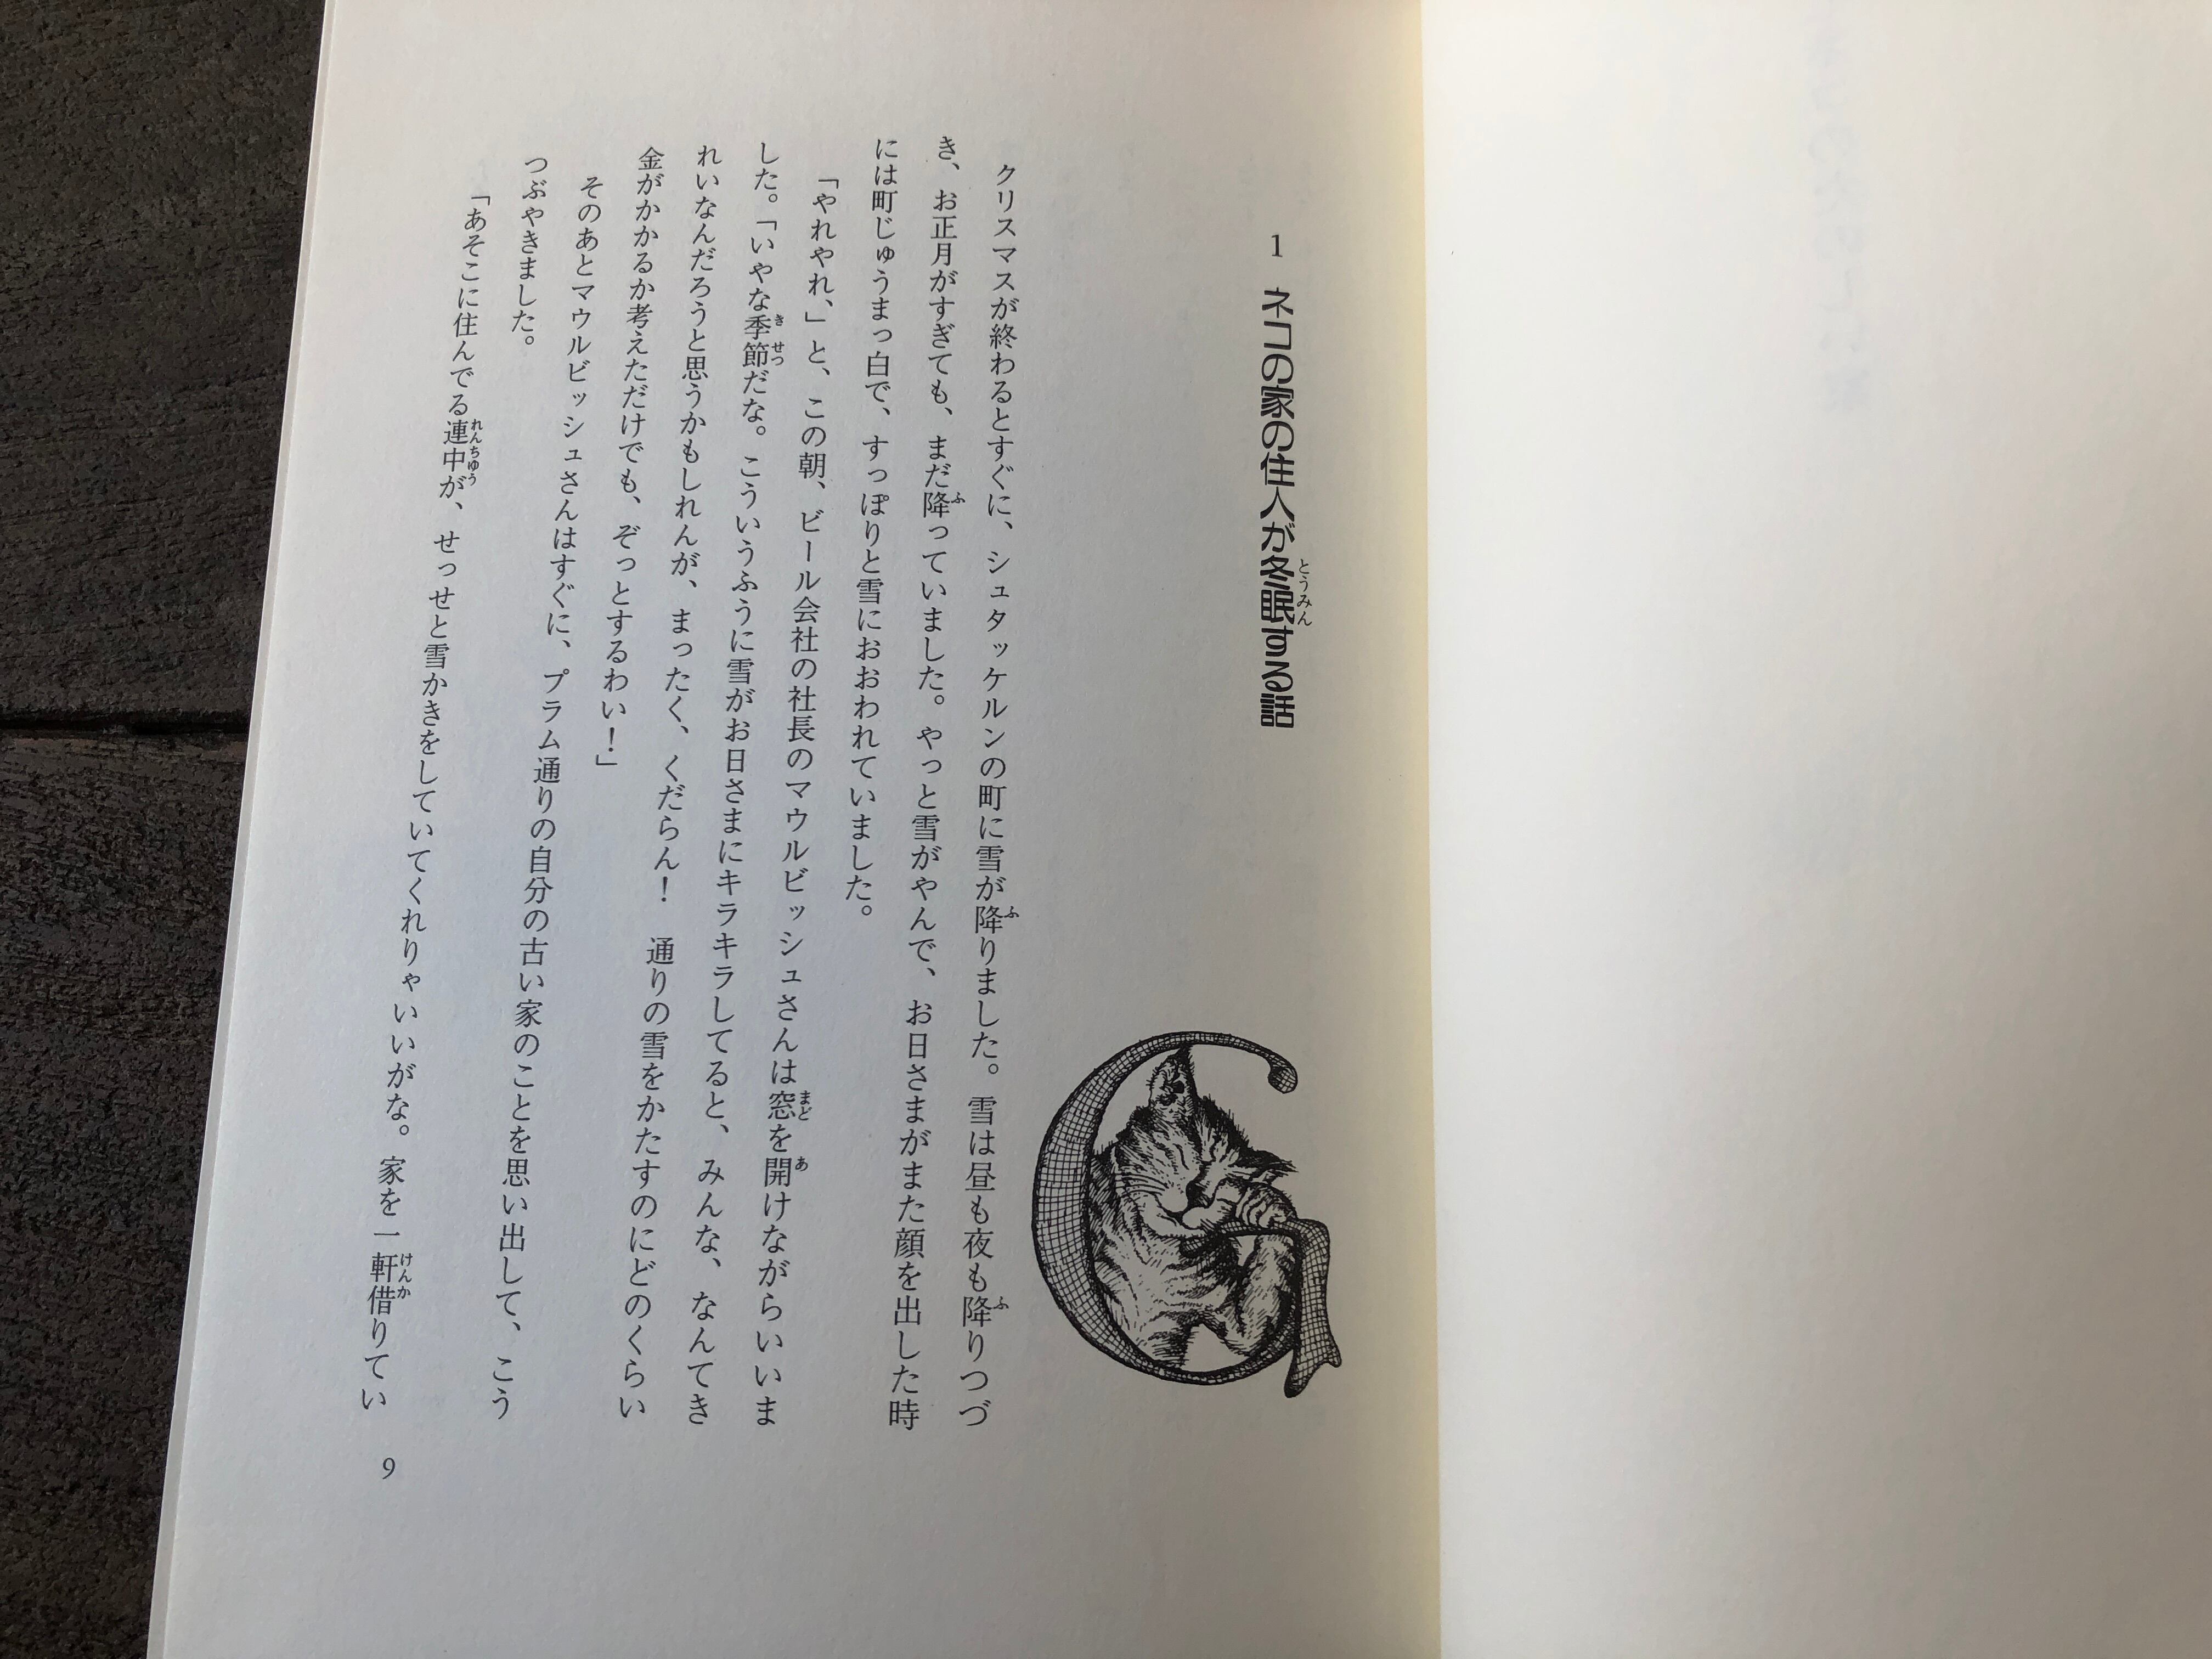 1 ネコの家の住人が冬眠する話
クリスマスが終わるとすぐに、シュタッケルンの町に雪が降りました。雪は昼も夜も降りつづ
き、お正月がすぎても、まだ降っていました。やっと雪がやんで、お日さまがまた顔を出した時
には町じゅうまっ白で、すっぽりと雪におおわれていました。
「やれやれ、」と、この朝、ビール会社の社長のマウルビッシュさんは窓を開けながらいいま
した。「いやな季節だな。こういうふうに雪がお日さまにキラキラしてると、みんな、なんてき
れいなんだろうと思うかもしれんが、まったく、くだらん！　通りの雪をかたすのにどのくらい
金がかかるか考えただけでも、ぞっとするわい！」
そのあとマウルビッシュさんはすぐに、プラム通りの自分の古い家のことを思い出して、こう
つぶやきました。
「あそこに住んでる連中が、せっせと雪かきをしていてくれりゃいいがな。家を一軒借りてい
9